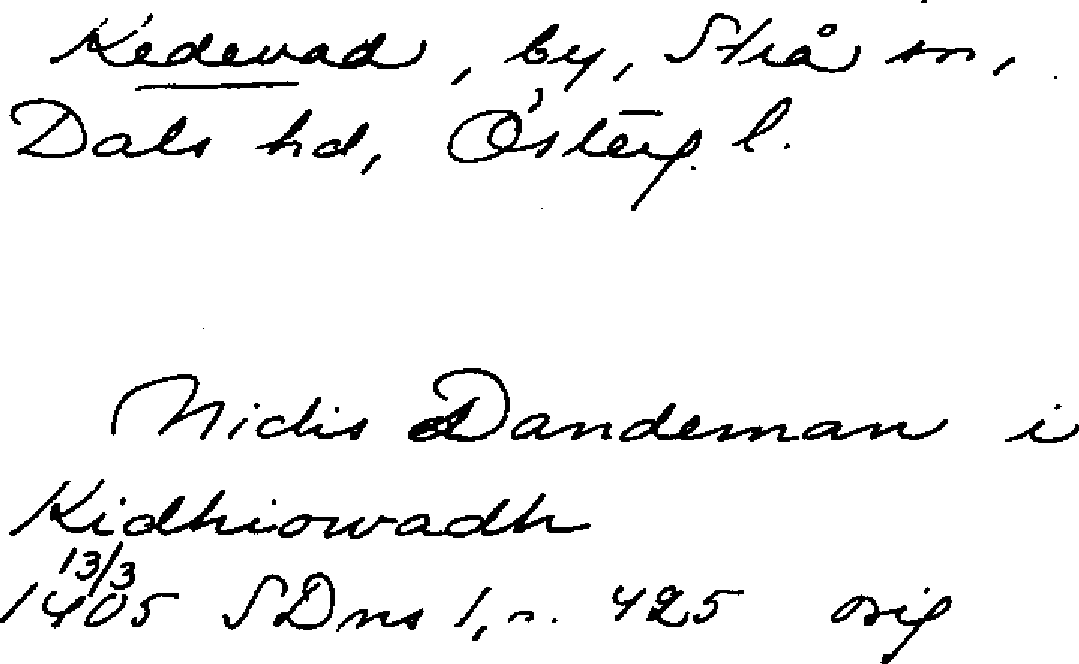 Kedevad, by, Strå sn,
Dals hd, Österg. l.
Niclis Dandeman i
Kidhiowadh
13/3
1405 SDns 1, n. 425 orig